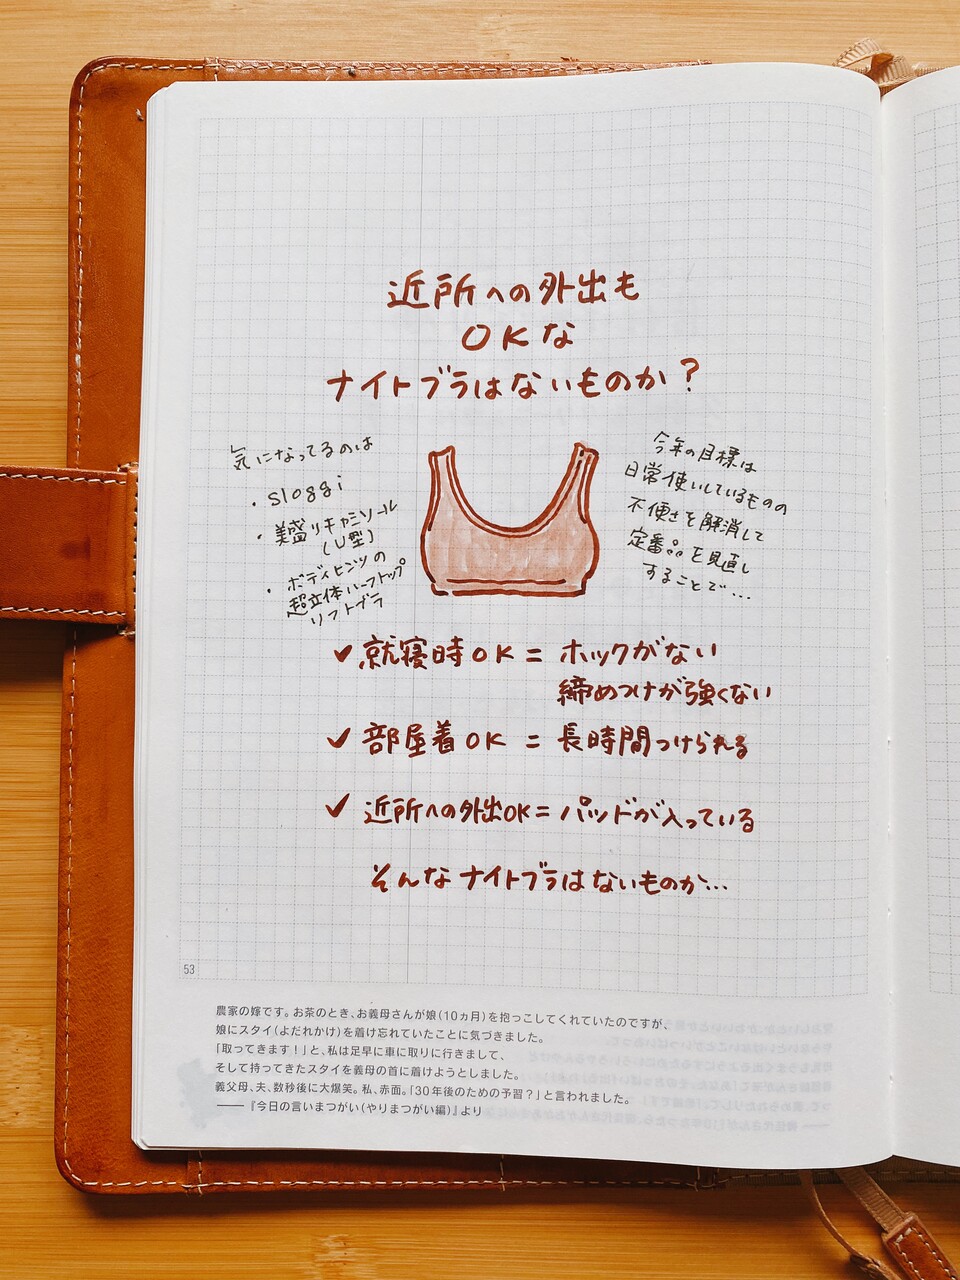 近所への外出も
OKな
ナイトブラはないものか?
気になってるのは
・sloggi
・美盛りキャミソール
(U型)
・ボディヒンツの
超立体ハーフトップ
リフトブラ
今年の目標は
日常使いしているものの
不便さを解消して
定番品を見直し
することで...
✓就寝時OK=ホックがない
締めつけが強くない
✓部屋着OK=長時間つけられる
✓近所への外出OK=パッドが入っている
そんなナイトブラはないものか...
53
農家の嫁です。お茶のとき、お義母さんが娘(10ヵ月)を抱っこしてくれていたのですが、
娘にスタイ(よだれかけ)を着け忘れていたことに気づきました。
「取ってきます!」と、私は足早に車に取りに行きまして、
そして持ってきたスタイを義母の首に着けようとしました。
義父母、夫、数秒後に大爆笑。私、赤面。「30年後のための予習?」と言われました。
──『今日の言いまつがい(やりまつがい編)』より